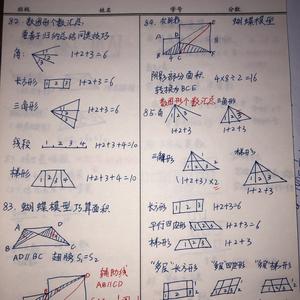 班级 姓名 学号 分数
82. 数图形个数汇总:
角: 1+2+3=6
长方形 1 2 3 1+2+3=6
三角形 1+2+3=6
线段 1 2 3 4 1+2+3+4=10
梯形 1 2 3 4 1+2+3+4=10
83. 蝴蝶模型巧算面积
A D
B C
AD//BC 翅膀 S₁=S₂
辅助线
AB//CD
84. 蝴蝶模型
阴影部分面积 4×8÷2=16
转换为BCE
数图形个数汇总
85. 角 三角形
1+2+3 1+2+3
三角形 梯形
(1+2+3)×2 1+2+3
长方形 1 2 3 1+2+3=6
平行四边形 1+2+3=6
梯形 1+2+3
"多层"长方形 "多层"四边形 "多层"梯形